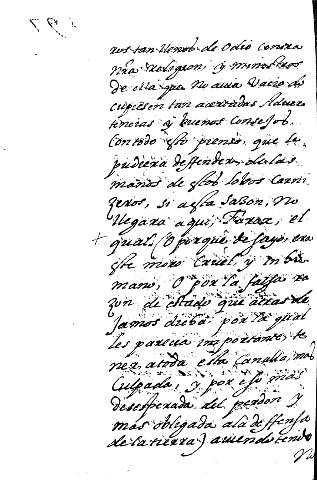 ros tan llenos de Odio contra
nra Religion, y ministros
de ella que No auia Vacio do
cupiesen tan acertadas Aduer
tencias y buenos Consejos.
Con todo esto pienso que se
pudiera deffender, de las
manos de estos lobos Carni
zeros, si a esta Sazon, no
llegara aqui, Farax, el
qual (O porque de suyo, era
este moro Cruel, y inhu
mano, O por la falsa ra
zon de estado que atras de
jamos dicha por la qual
les parecia importante, te
ner a toda esta Canalla, mas
Culpada, y por eso mas
desesperada del perdon y
mas obligada a la deffensa
de la tierra) auiendo tenido